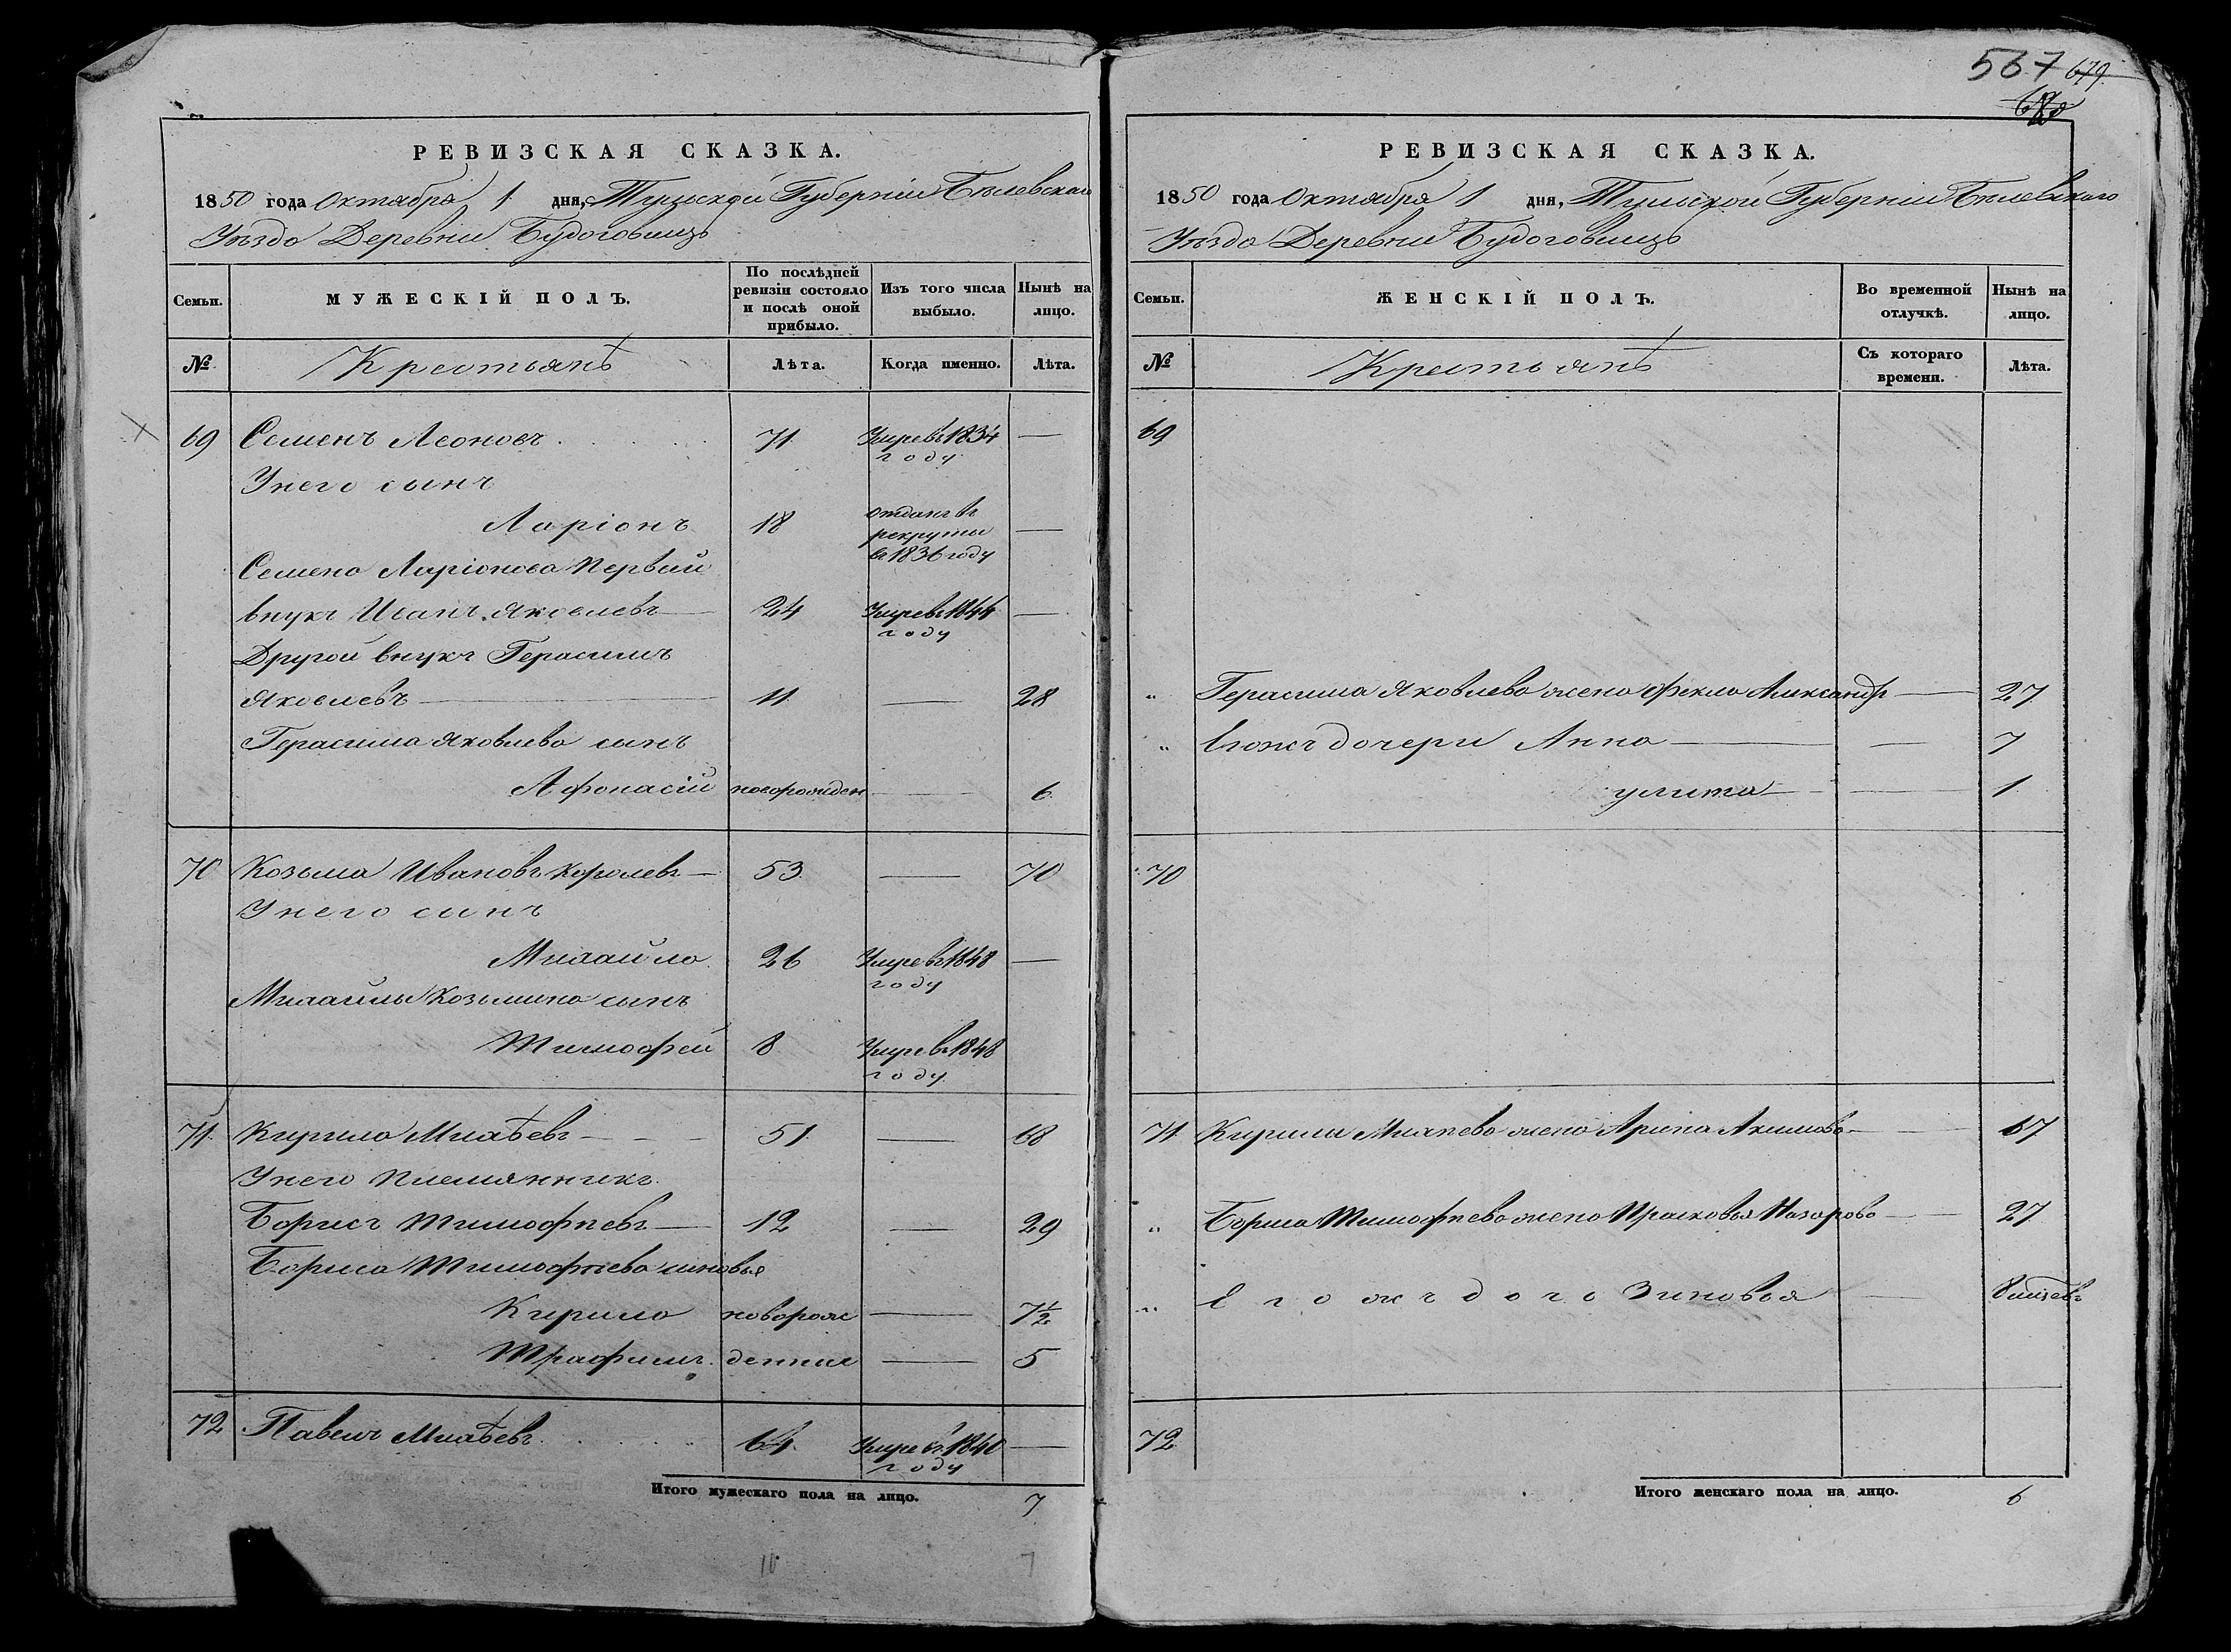 567 679
РЕВИЗСКАЯ СКАЗКА.
1850 года Октября 1 дня, Тульской Губерніи Бѣлевскаго
Уѣзда Деревни Будоговищь
Семьи.
МУЖЕСКІЙ ПОЛЪ.
По послѣдней ревизіи состояло и послѣ оной прибыло.
Изъ того числа выбыло.
Нынѣ на лицо.
№ Крестьянъ Лѣта. Когда именно. Лѣта.
69 Семенъ Леоновъ 71 Умре въ 1834 году —
У него сынъ
Ларіонъ 18 отданъ въ рекруты въ 1836 году —
Семена Ларіонова Первый
внукъ Иванъ Яковлевъ — 24 Умре въ 1844 году —
Другой внукъ Герасимъ
Яковлевъ — 11 — 28
Герасима Яковлева сынъ
Афонасій новорожден — 6
70 Козьма Ивановъ Королевъ — 53 — 70
У него сынъ
Михайло 26 Умре въ 1848 году —
Михайлы Козьмина сынъ
Тимофей 8 Умре въ 1848 году
71 Кирило Михѣевъ — 51 — 68
У него племянникъ
Борисъ Тимофѣевъ — 12 — 29
Бориса Тимофѣева сыновья
Кирило новорож — 7½
Трафимъ денные — 5
72 Павелъ Михѣевъ 64 Умре въ 1840 году —
Итого мужескаго пола на лицо. 7
10 7
РЕВИЗСКАЯ СКАЗКА.
1850 года Октября 1 дня, Тульской Губерніи Бѣлевскаго
Уѣзда Деревни Будоговищь
Семьи.
ЖЕНСКІЙ ПОЛЪ.
Во временной отлучкѣ.
Нынѣ на лицо.
№ Крестьянъ Съ котораго времени. Лѣта.
69
" Герасима Яковлева жена Фекла Александр — 27
" Егожъ дочери Анна — — 7
улита — — 1
70
71 Кирилы Михѣева жена Арина Акимова — 67
" Бориса Тимофѣева жена Прасковья Назарова — 27
" Егожъ дочь Зиновья — 8 мѣсяцевъ
72
Итого женскаго пола на лицо. 6